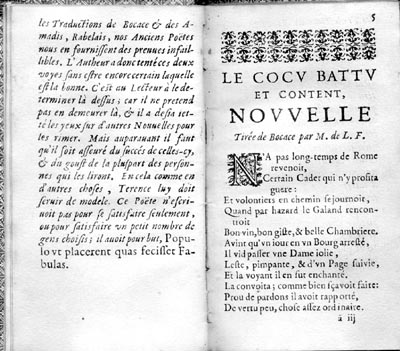 les Traductions de Bocace & des A-
madis, Rabelais, nos Anciens Poëtes
nous en fournissent des preuves infail-
libles. L'Autheur a donc tenté ces deux
voyes sans estre encore certain laquelle
est la bonne. C'est au Lecteur à le de-
terminer là dessus; car il ne pretend
pas en demeurer là, & il a desia iet-
té les yeux sur d'autres Nouuelles pour
les rimer. Mais auparauant il faut
qu'il soit asseuré du succés de celles-cy,
& du goust de la pluspart des person-
nes qui les liront. En cela comme en
d'autres choses, Terence luy doit
seruir de modele. Ce Poëte n'escri-
uoit pas pour se satisfaire seulement,
ou pour satisfaire vn petit nombre de
gens choisis; il auoit pour but, Popu-
lo vt placerent quas fecisset Fa-
bulas.
5
LE COCV BATTV
ET CONTENT,
NOVVELLE
Tirée de Bocace par M. de L. F.
N'A pas long-temps de Rome
revenoit,
Certain Cadet qui n'y profita
guere:
Et volontiers en chemin sejournoit,
Quand par hazard le Galand rencon-
troit
Bon vin, bon giste, & belle Chambriere.
Avint qu'vn iour en vn Bourg arresté,
Il vid passer vne Dame iolie,
Leste, pimpante, & d'vn Page suivie,
Et la voyant il en fut enchanté.
La convoita; comme bien sçavoit faire:
Prou de pardons il avoit rapporté,
De vertu peu, chose assez ordinaire.
ā iij